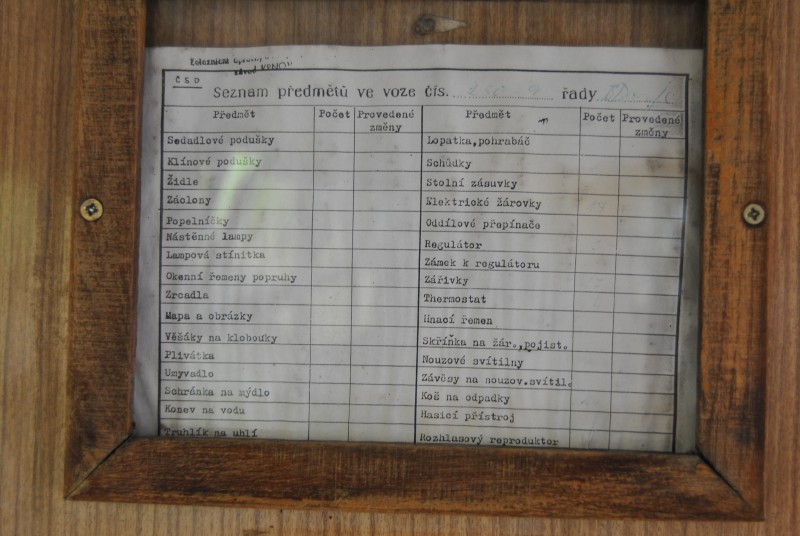 Železniční
závod
ČSD
Seznam předmětů ve voze čís. řady
Předmět Počet Provedené změny Předmět Počet Provedené změny
Sedadlové podušky Lopatka, pohrabáč
Klínové podušky Schůdky
Židle Stolní zásuvky
Záclony Elektrické žárovky
Popelníčky Oddílové přepínače
Nástěnné lampy Regulátor
Lampová stínítka Zámek k regulátoru
Okenní řemeny popruhy Zářivky
Zrcadla Thermostat
Mapa a obrázky Hnací řemen
Věšáky na klobouky Skříňka na žár.,pojist.
Plivátka Nouzové svítilny
Umyvadlo Závěsy na nouzov.svítil.
Schránka na mýdlo Koš na odpadky
Konev na vodu Hasicí přístroj
Truhlík na uhlí Rozhlasový reproduktor